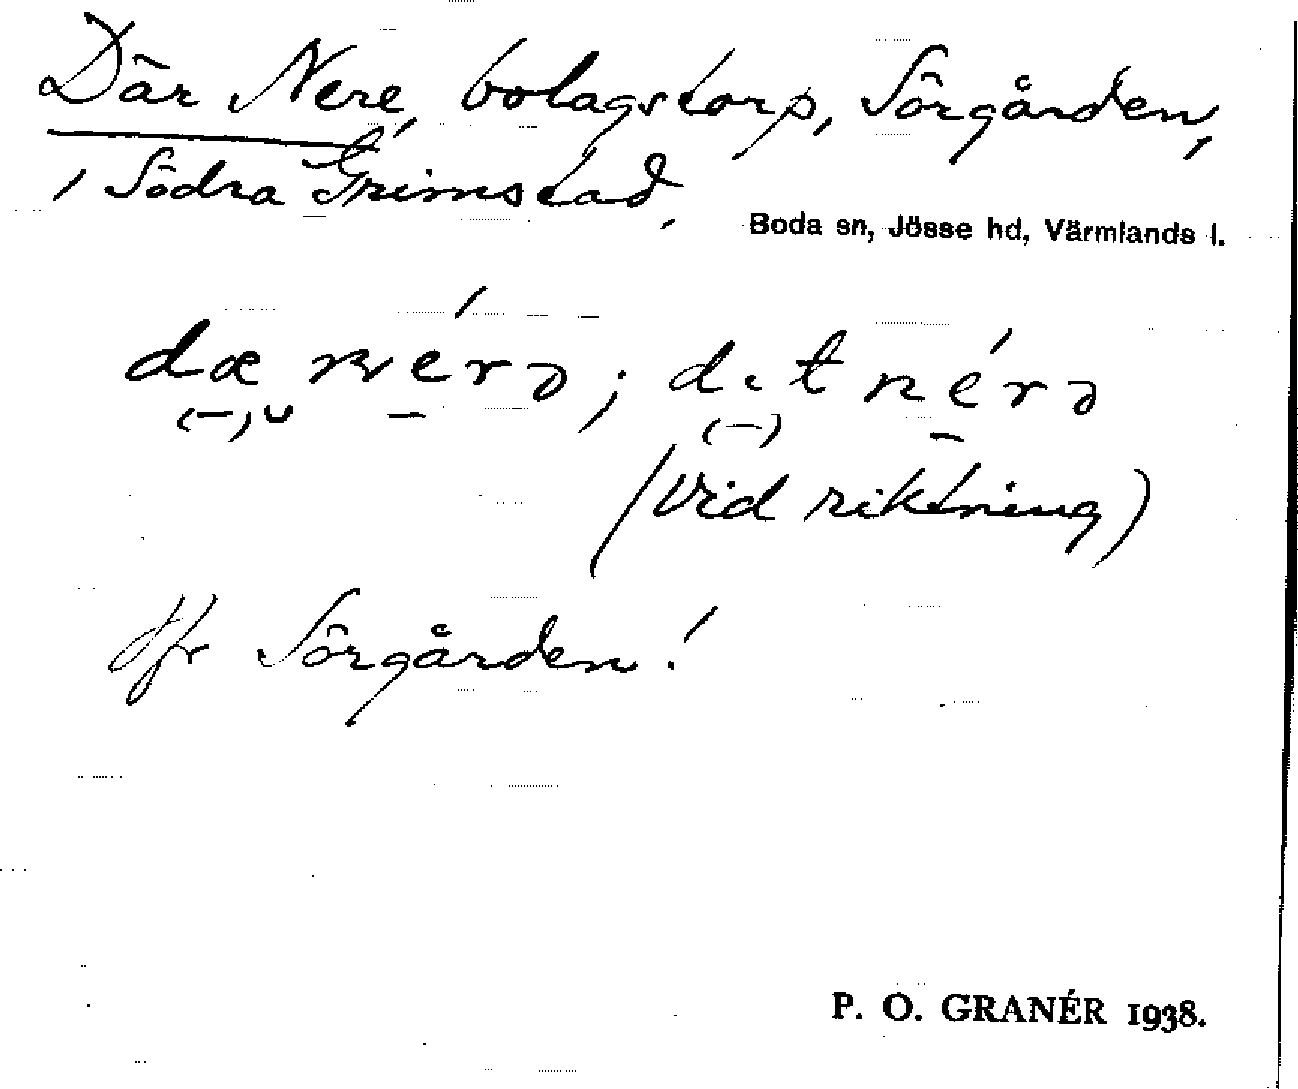 Där Nere, bolagstorp, Sörgården,
, Södra Grimstad,
Boda sn, Jösse hd, Värmlands l.
dæ nérə; dit nérə
(vid riktning)
Jfr Sörgården!
P. O. GRANÉR 1938.